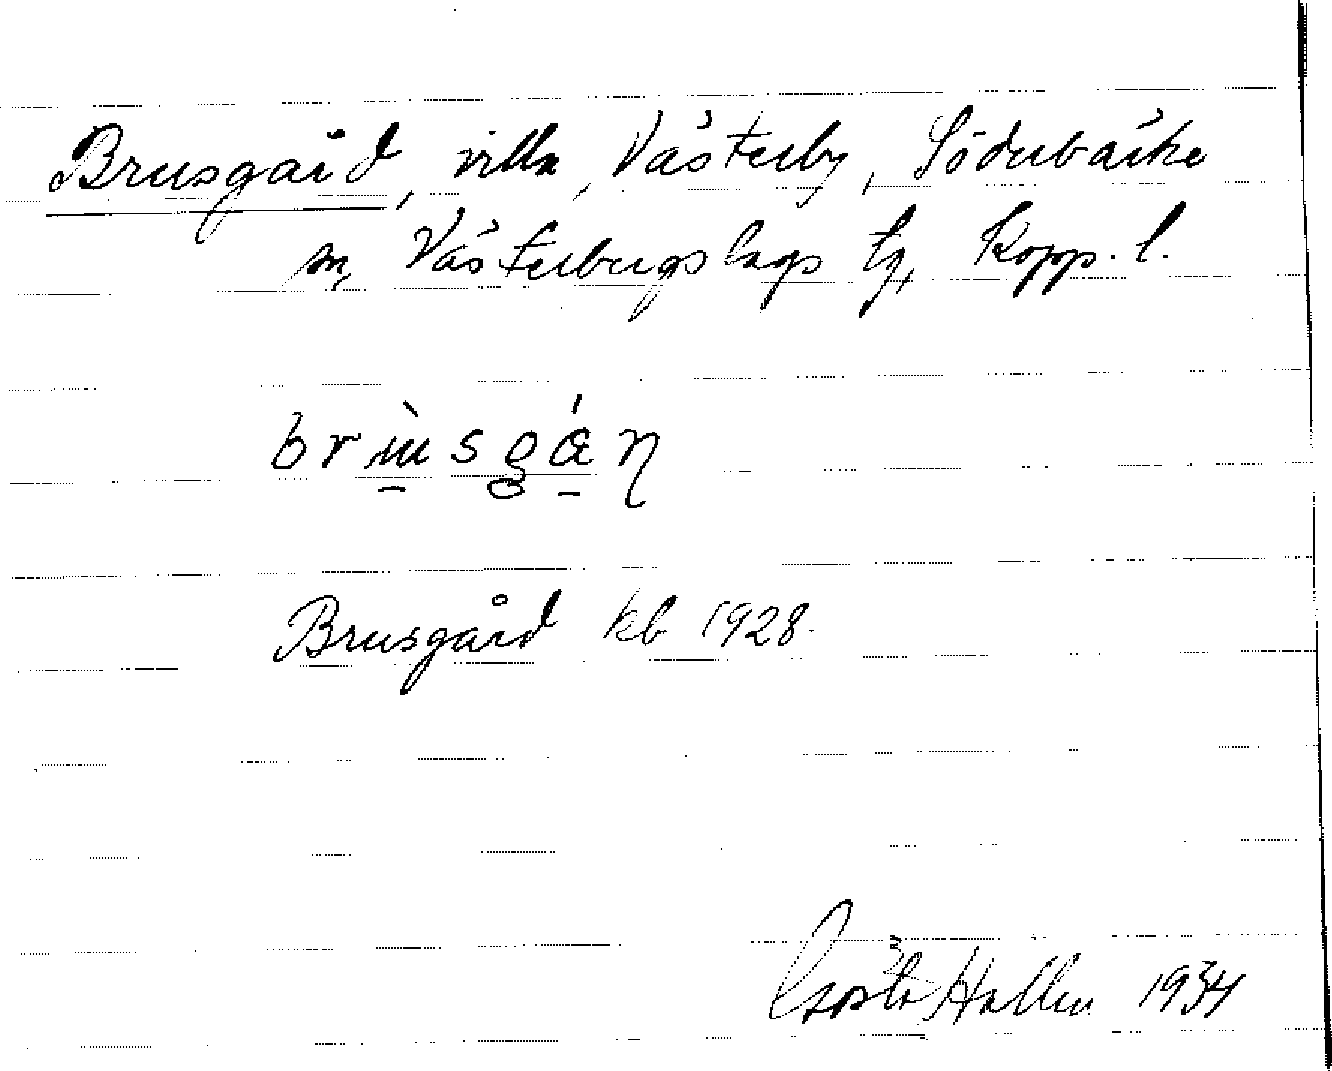 Brusgård, villa, Västerby, Söderbärke
sn, Västerbergslags tg, Kopp. l.
Brusgård kb 1928.
Gösta Hallen 1934